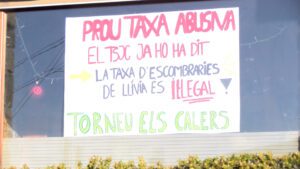 PROU TAXA ABUSIVA
EL TSJC JA HO HA DIT
LA TAXA D'ESCOMBRARIES
DE LLÍVIA ÉS IL·LEGAL!
TORNEU ELS CALERS